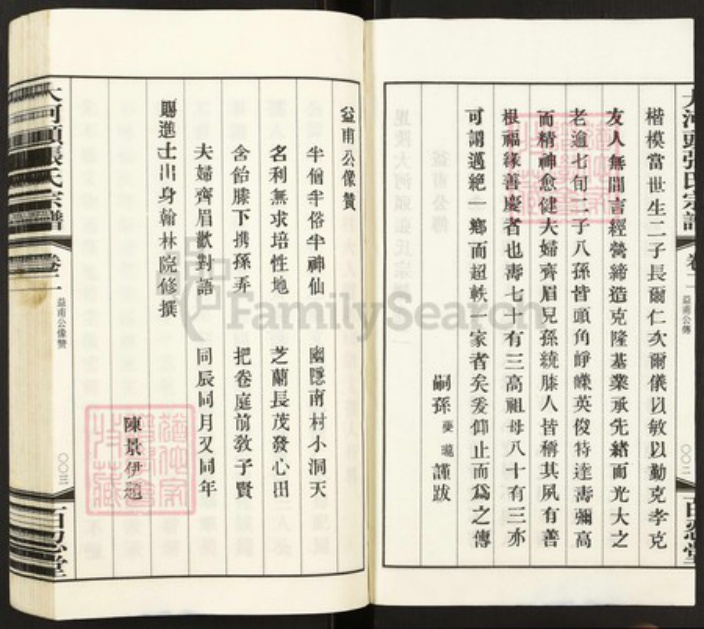 大河頭張氏宗譜
卷二
益甫公傳
〇〇二
百忍堂
楷模當世生二子長爾仁次爾儀以敏以勤克孝克
友人無間言經營締造克隆基業承先緒而光大之
老逾七旬二子八孫皆頭角崢嶸英俊特達壽彌高
而精神愈健夫婦齊眉兒孫繞膝人皆稱其夙有善
根福緣善慶者也壽七十有三高祖母八十有三亦
可謂邁絕一鄉而超軼一家者矣爰仰止而為之傳
嗣孫 謹跋
益甫公像贊
半僧半俗半神仙 幽隱南村小洞天
名利無求培性地 芝蘭長茂發心田
含飴膝下携孫弄 把卷庭前教子賢
夫婦齊眉歡對語 同辰同月又同年
賜進士出身翰林院修撰
陳景伊題
大河頭張氏宗譜
卷二
益甫公像贊
〇〇三
百忍堂
FamilySearch